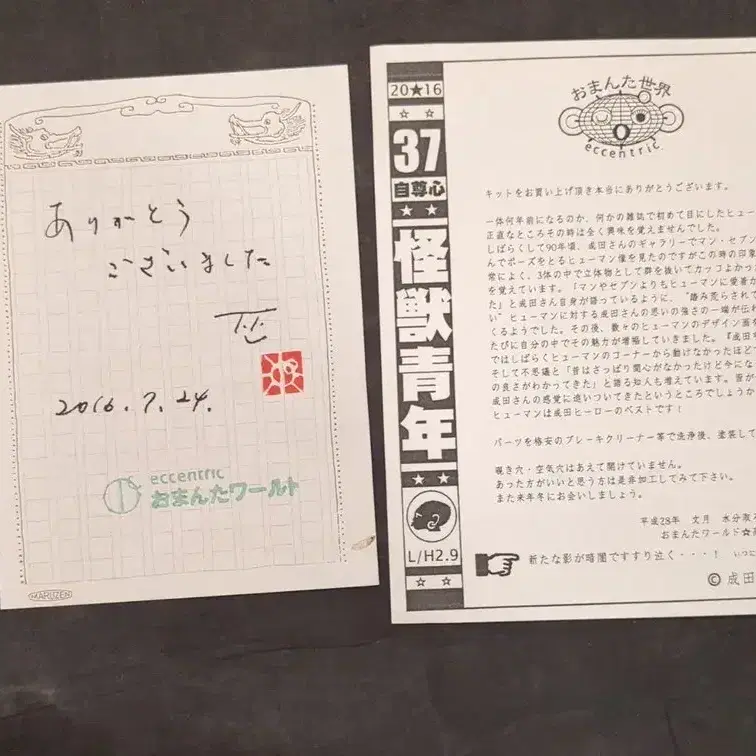 ありがとう
ございました
2016.7.24.
eccentric
おまんたワールド
MARUZEN
20★16
☆ ☆
37
自尊心
★ ★
怪獣青年
★ ★
L/H2.9
☆ ☆
おまんた世界
eccentric
キットをお買い上げ頂き本当にありがとうございます。
一体何年前になるのか、何かの雑誌で初めて目にしたヒュー
正直なところその時は全く興味を覚えませんでした。
しばらくして90年頃、成田さんのギャラリーでマン・セブン
んでポーズをとるヒューマン像を見たのですがこの時の印象
常によく、3体の中で立体物として群を抜いてカッコよかった
を覚えています。「マンやセブンよりもヒューマンに愛着が
た」と成田さん自身が語っているように、"踏み荒らされて
い"ヒューマンに対する成田さんの思いの強さの一端が伝わ
くるようでした。その後、数々のヒューマンのデザイン画を
たびに自分の中でその魅力が増幅していきました。『成田
ではしばらくヒューマンのコーナーから動けなかったほど
そして不思議と「昔はさっぱり関心がなかったけど今にな
の良さがわかってきた」と語る知人も増えています。皆が
成田さんの感覚に追いついてきたというところでしょうか
ヒューマンは成田ヒーローのベストです！
パーツを格安のブレーキクリーナー等で洗浄後、塗装して
覗き穴・空気穴はあえて開けていません。
あった方がいいと思う方は是非加工してみて下さい。
また来年冬にお会いしましょう。
平成28年 文月 水分取
おまんたワールド☆
新たな影が暗闇ですすり泣く・・・！ いつに
© 成田